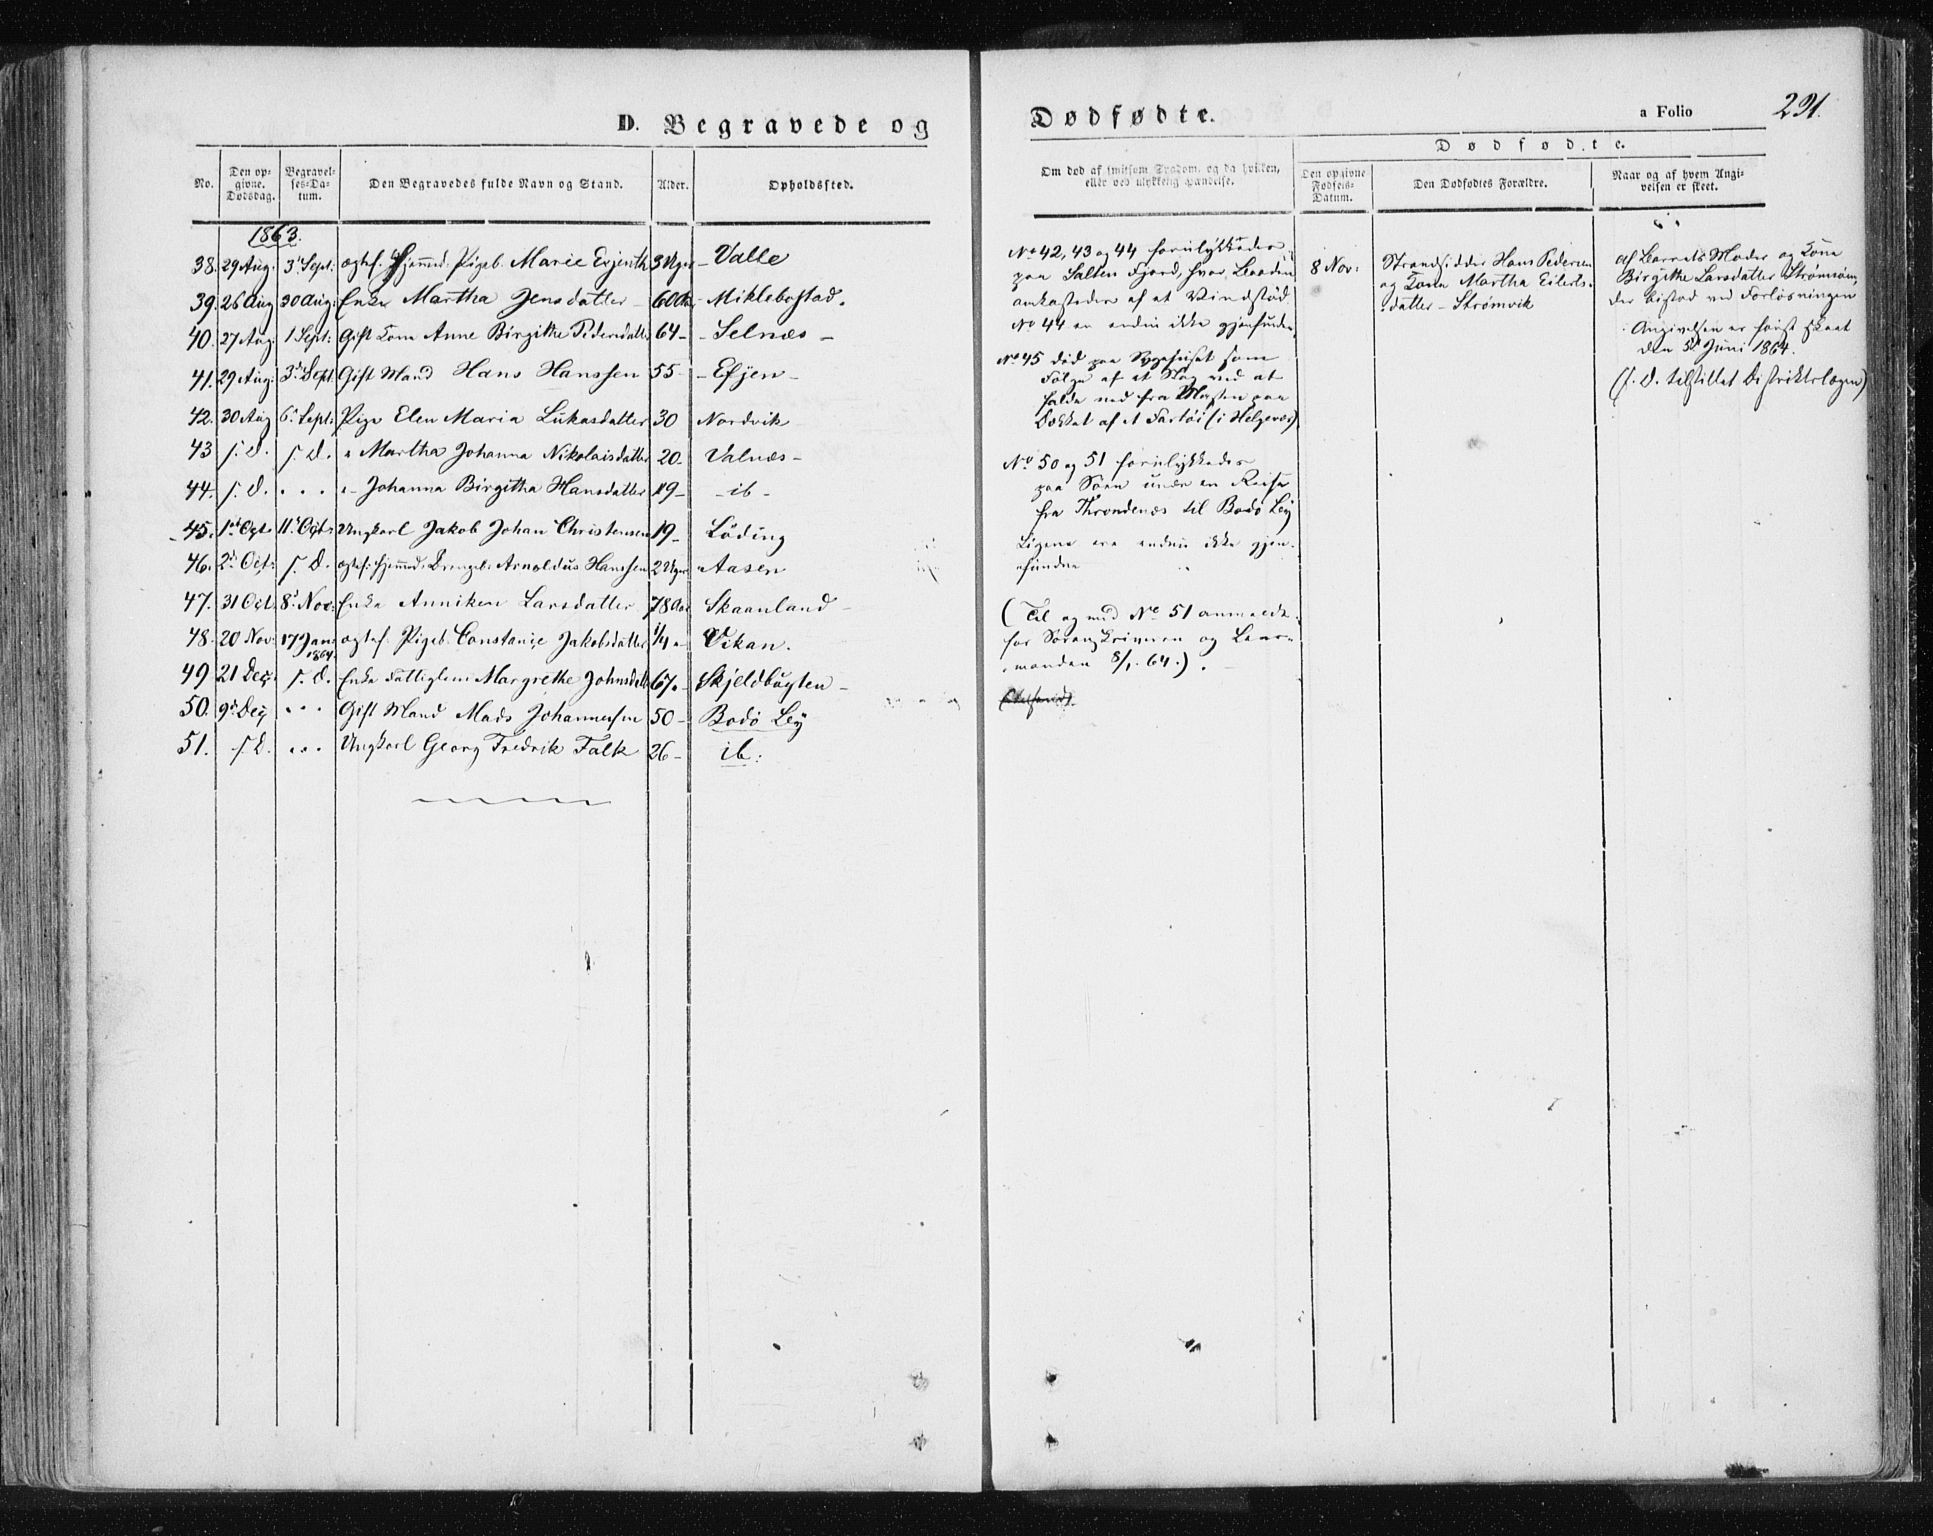 D. Begravede og
No.
Den opgivne Dødsdag.
Begravelses-Datum.
Den Begravedes fulde Navn og Stand.
Alder.
Opholdssted.
1863.
38. 29 Aug: 3 Sept: ægtef. hjemmed. Pigeb. Marie Evjenth 3 Uger - Valle
39. 26 Aug 30 Aug: Enke Martha Jensdatter - 60 Aar - Miklebostad.
40. 27 Aug: 1 Sept: Gift Kone Anne Birgitte Pedersdatter 64 - - Selnæs -
41. 29 Aug: 3 Sept. Gift Mand Hans Hanssen 55 - - Efjen -
42. 30 Aug 6 Sept: Pige Elen Maria Lukasdatter 30 Nordvik
43 s. D. s. D. " Martha Johanna Nikolaisdatter 20 - Valnæs -
44. s. D. " " " "- Johanna Birgitha Hansdatter 19 - - ib -
45. 1st Oct: 11 Oct: Ungkarl Jakob Johan Christensen 19 - Löding
46. 2 Oct: s. D. ægtef: hjemmed: Drengeb: Arnoldus Hanssen 2 Uger Aasen
47. 31 Oct. 8 Nov: Enke Anniken Larsdatter 78 Aar Skaanland -
48. 20 Nov: 17 Jan: 1864. ægtef. Pigeb. Constance Jakobsdatter 1/4 " Vikan.
49 21 Dec: s. d. Enke Fattiglem Margrethe Johnsdatter 67 " - Skjeldbugten -
50. 9 Dec " " " Gift Mand Mads Johannessen 50 - Bodö By
51. s D. " " " Ungkarl Georg Fredrik Falk 26 - ib:
Dødfødte.
a Folio 291.
Om død af smitsom Sygdom, og da hvilken, eller ved ulykkelig Hændelse.
Dødfødte.
Den opgivne Fødsels-Datum.
Den Dødfødtes Forældre.
Naar og af hvem Angivelsen er skeet.
No 42, 43 og 44 forulykkedes
paa Salten Fjord, hvor Baaden
omkastedes af et Vindstød
No 44 er endnu ikke gjenfunden
No 45 død paa Sygehuset som
Følge af et Slag ved at
falde ned fra Masten paa
Dækket af et Fartøi (i Helgevær)
No 50 og 51 forulykkedes
paa Søen under en Reise
fra Throndenæs til Bodö By
Ligene ere endnu ikke gjen-
fundne
(Til og med No 51 anmeldt
for Sorenskriveren og Lens-
manden 8/1. 64.).
8 Nov:
Strandsidder Hans Pedersen
og Kone Martha Eilerts-
datter - Strømvik
af Barnets Moder og Kone
Birgitte Larsdatter Strømsøm,
der bistod ved Forløsningen
Angivelsen er først skeet
den 5 Juni 1864.
(s. D. tilstillet Distriktslægen)